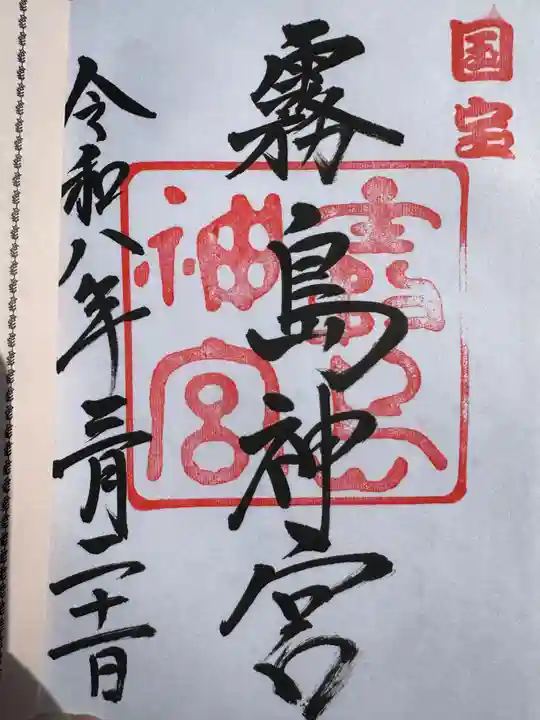 国宝
霧島神宮
霧島神宮
令和八年三月二十一日